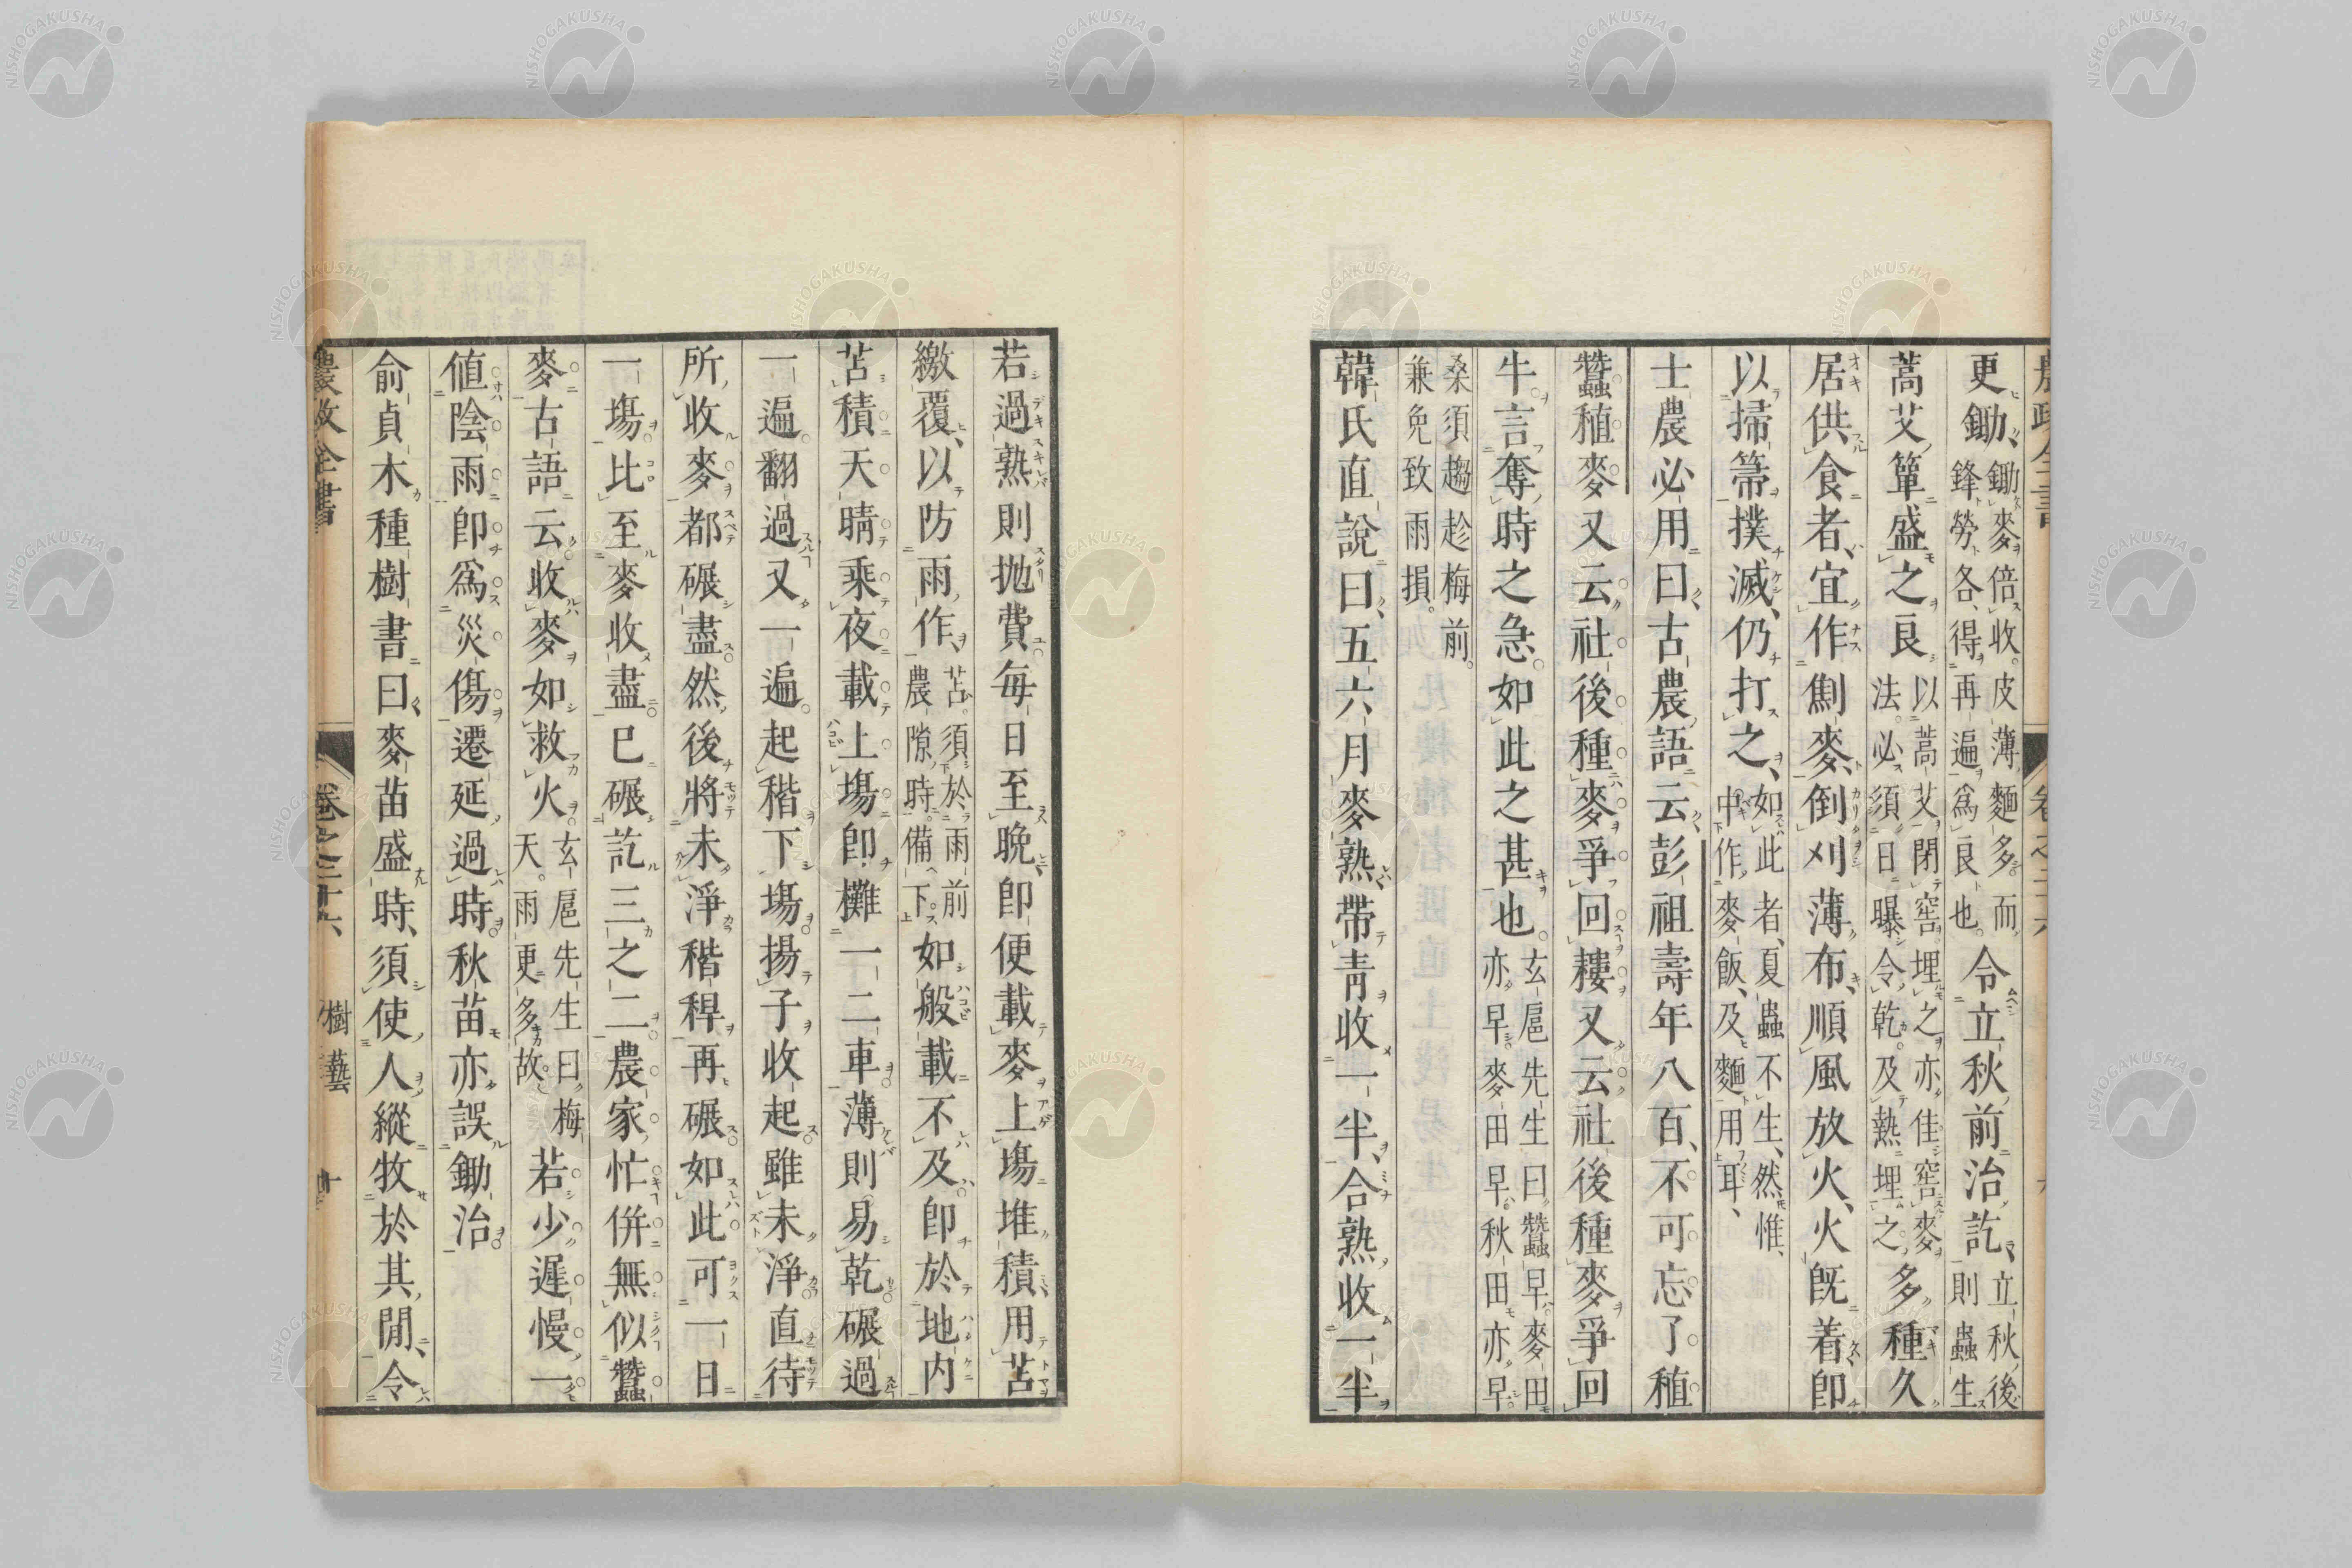 更鋤鋤麥倍收皮薄麵多而鋒勞各得再遍爲良也令立秋前治訖立秋後則蟲生
蒿艾簞盛之良以蒿艾閉窖埋之亦佳窖麥法必須日曝令乾及熱埋之多種久
居供食者宜作劁麥倒刈薄布順風放火火旣着卽
以掃箒撲滅仍打之如此者夏蟲不生然惟中作麥飯及麵用耳
士農必用曰古農語云彭祖壽年八百不可忘了稙
蠶稙麥又云社後種麥爭回耬又云社後種麥爭回
牛言奪時之急如此之甚也玄扈先生曰蠶早麥田亦早麥田早秋田亦早
桑須趨趁梅前兼免致雨損
韓氏直說曰五六月麥熟帶青收一半合熟收一半
若過熟則抛費每日至晩卽便載麥上塲堆積用苫
繳覆以防雨作苫須於雨前農隙時備下如般載不及卽於地内
苫積天晴乘夜載上塲卽攤一二車薄則易乾碾過
一遍翻過又一遍起稭下塲揚子收起雖未淨直待
所收麥都碾盡然後將未淨稭稈再碾如此可一日
一塲比至麥收盡已碾訖三之二農家忙倂無似蠶
麥古語云收麥如救火玄扈先生曰梅天雨更多故若少遲慢一
値陰雨卽爲災傷遷延過時秋苗亦誤鋤治
俞貞木種樹書曰麥苗盛時須使人縱牧於其閒令
農政全書 卷之二十六 樹藝
NISHOGAKUSHA